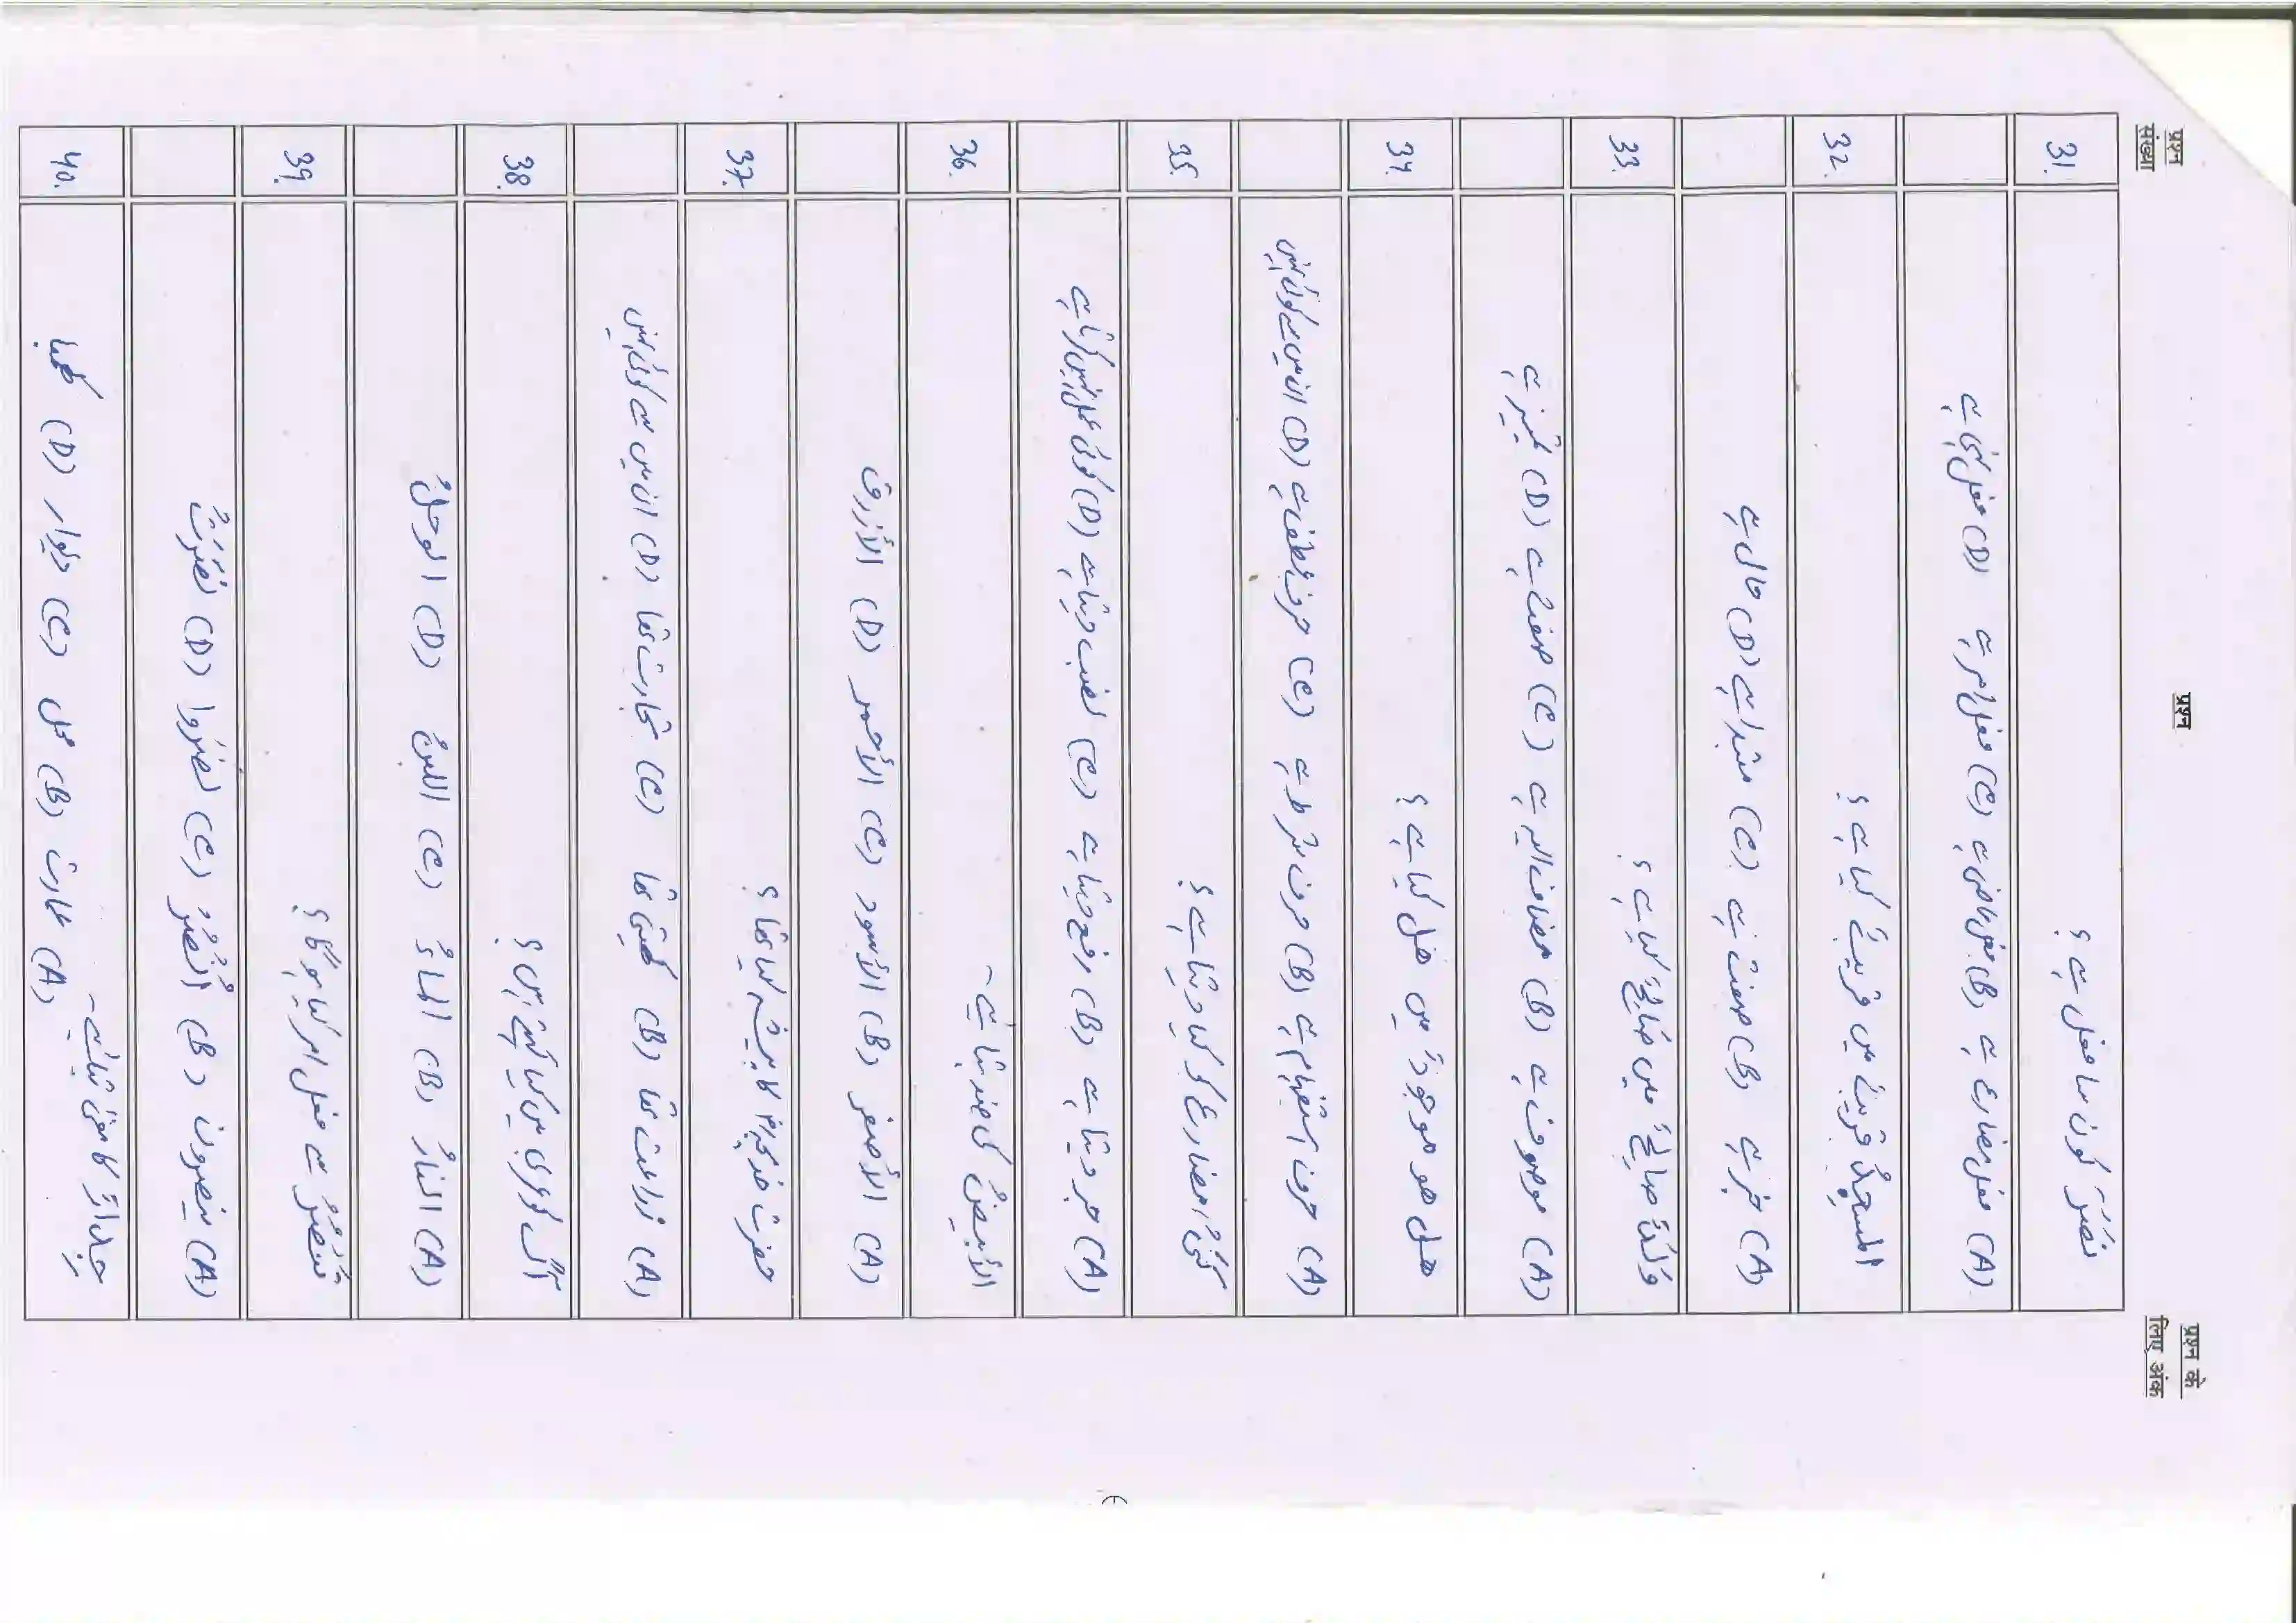 प्रश्न संख्या
प्रश्न
प्रश्न के लिए अंक
31. نَصَرَ کون سا فعل ہے ؟
(A) فعل مضارع ہے (B) فعل ماضی ہے (C) فعل امر ہے (D) فعل نہی ہے
32. المسجدُ قریبٌ میں قریبٌ کیا ہے ؟
(A) خبر ہے (B) صفت ہے (C) مبتدا ہے (D) حال ہے
33. وَلَدٌ صالحٌ میں صالحٌ کیا ہے ؟
(A) موصوف ہے (B) مضاف الیہ ہے (C) صفت ہے (D) تمیز ہے
34. ھل ھو موجودٌ میں ھل کیا ہے ؟
(A) حرف استفہام ہے (B) حرف شرط ہے (C) حرف عطف ہے (D) ان میں سے کوئی نہیں
35. مضارع کو کیا دیتا ہے ؟
(A) جر دیتا ہے (B) رفع دیتا ہے (C) نصب دیتا ہے (D) کوئی عمل نہیں کرتا ہے
36. الأبیضُ کی ضد بتائیے ۔
(A) الأصفر (B) الأسود (C) الأحمر (D) الأزرق
37. حضرت خدیجہؓ کا پیشہ کیا تھا ؟
(A) زراعت تھا (B) کھیتی تھا (C) تجارت تھا (D) ان میں سے کوئی نہیں
38. آگ کو عربی میں کیا کہتے ہیں ؟
(A) النارُ (B) الماءُ (C) اللبنُ (D) الوحلُ
39. تَنْصُرُ سے فعل امر کیا ہوگا ؟
(A) ینصرون (B) اُنْصُرْ (C) نصَرُوا (D) نَصَرَتْ
40. جدارٌ کا معنی بتائیے ۔
(A) عمارت (B) محل (C) دیوار (D) کھمبا